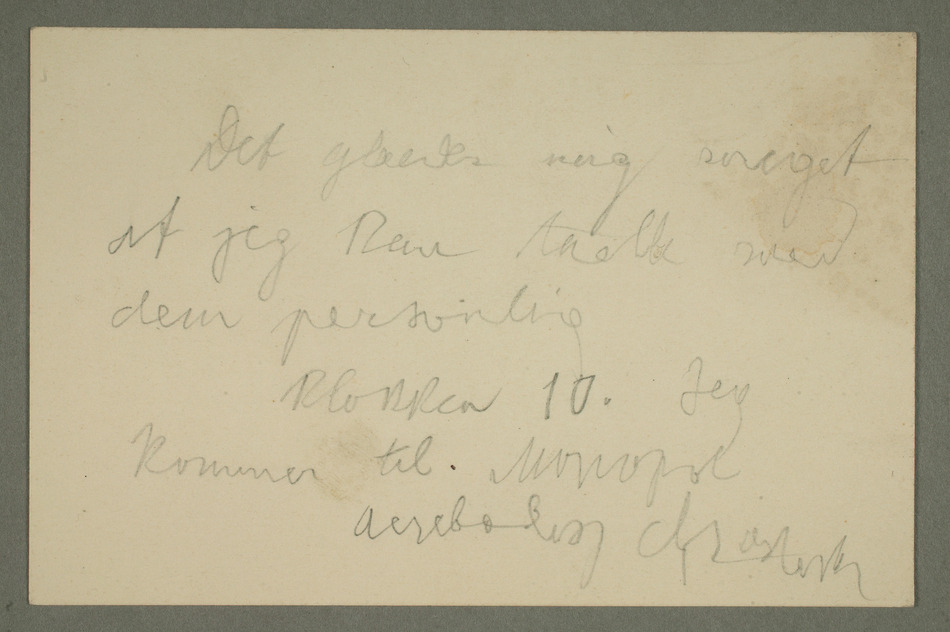 Det glæder mig meget
at jeg kan tale med
dem personlig
Klokken 10. Jeg
kommer til Monopol
ærebødigst